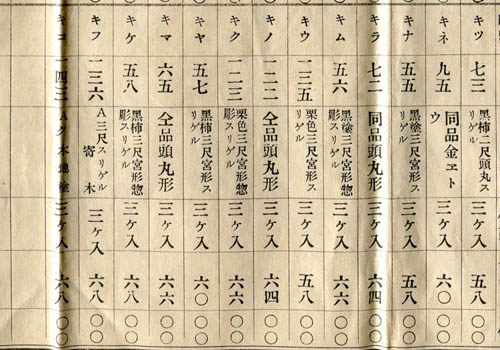 キツ 七三 黒柿三尺頭丸スリゲル 三ケ入 六〇 〇〇
キネ 九五 同品金ヱトウ 三ケ入 六〇 〇〇
キナ 五五 黒塗三尺宮形スリゲル 三ケ入 五八 〇〇
キラ 七二 同品頭丸形 三ケ入 六四 〇〇
キム 五六 黒塗三尺宮形惣彫スリゲル 三ケ入 六六 〇〇
キウ 一三五 栗色三尺宮形スリゲル 三ケ入 五八 〇〇
キノ 一二二 仝品頭丸形 三ケ入 六四 〇〇
キク 一二三 栗色三尺宮形惣彫スリゲル 三ケ入 六六 〇〇
キヤ 五七 黒柿三尺宮形スリゲル 三ケ入 六〇 〇〇
キマ 六五 仝品頭丸形 三ケ入 六六 〇〇
キケ 五八 黒柿三尺宮形惣彫スリゲル 三ケ入 六八 〇〇
キフ 一三六 A三尺スリゲル寄木 三ケ入 六八 〇〇
キコ 一四三 Aク木地塗 三ケ入 六八 〇〇